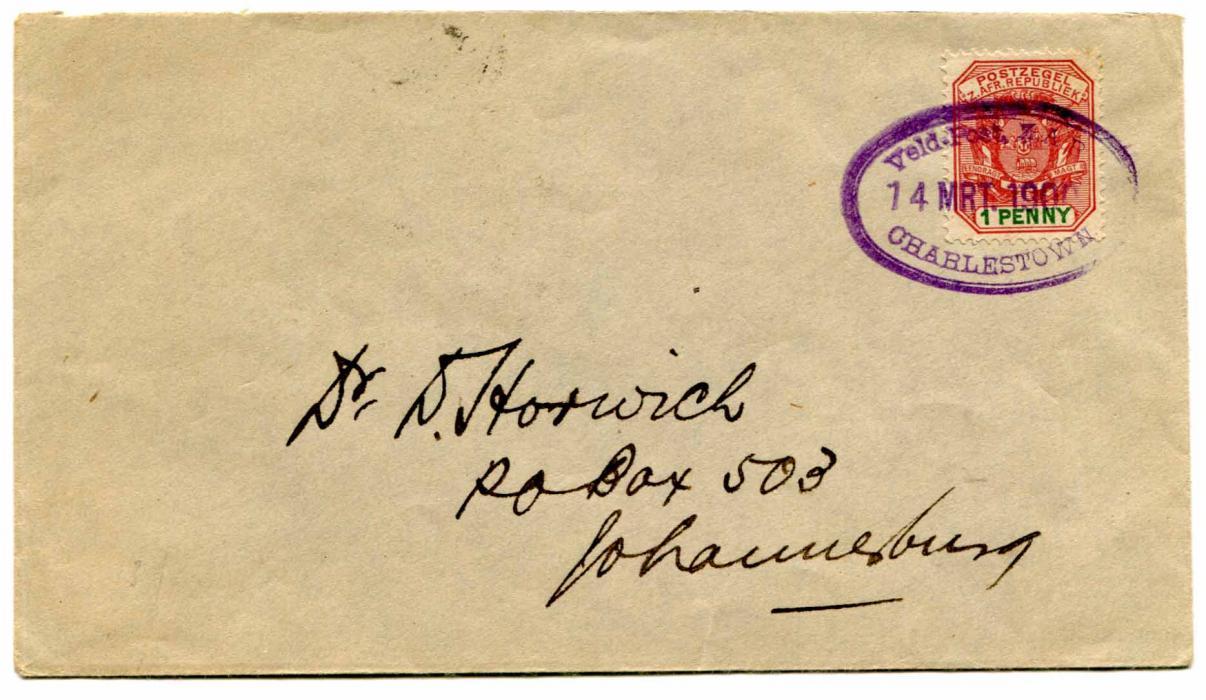 POSTZEGEL
Z. AFR. REPUBLIEK
EENDRAGT MAGT
1 PENNY
Veld-Post, Z.A.R.
14 MRT. 1900
CHARLESTOWN
Dr. D. Horwich
PO Box 503
Johannesburg